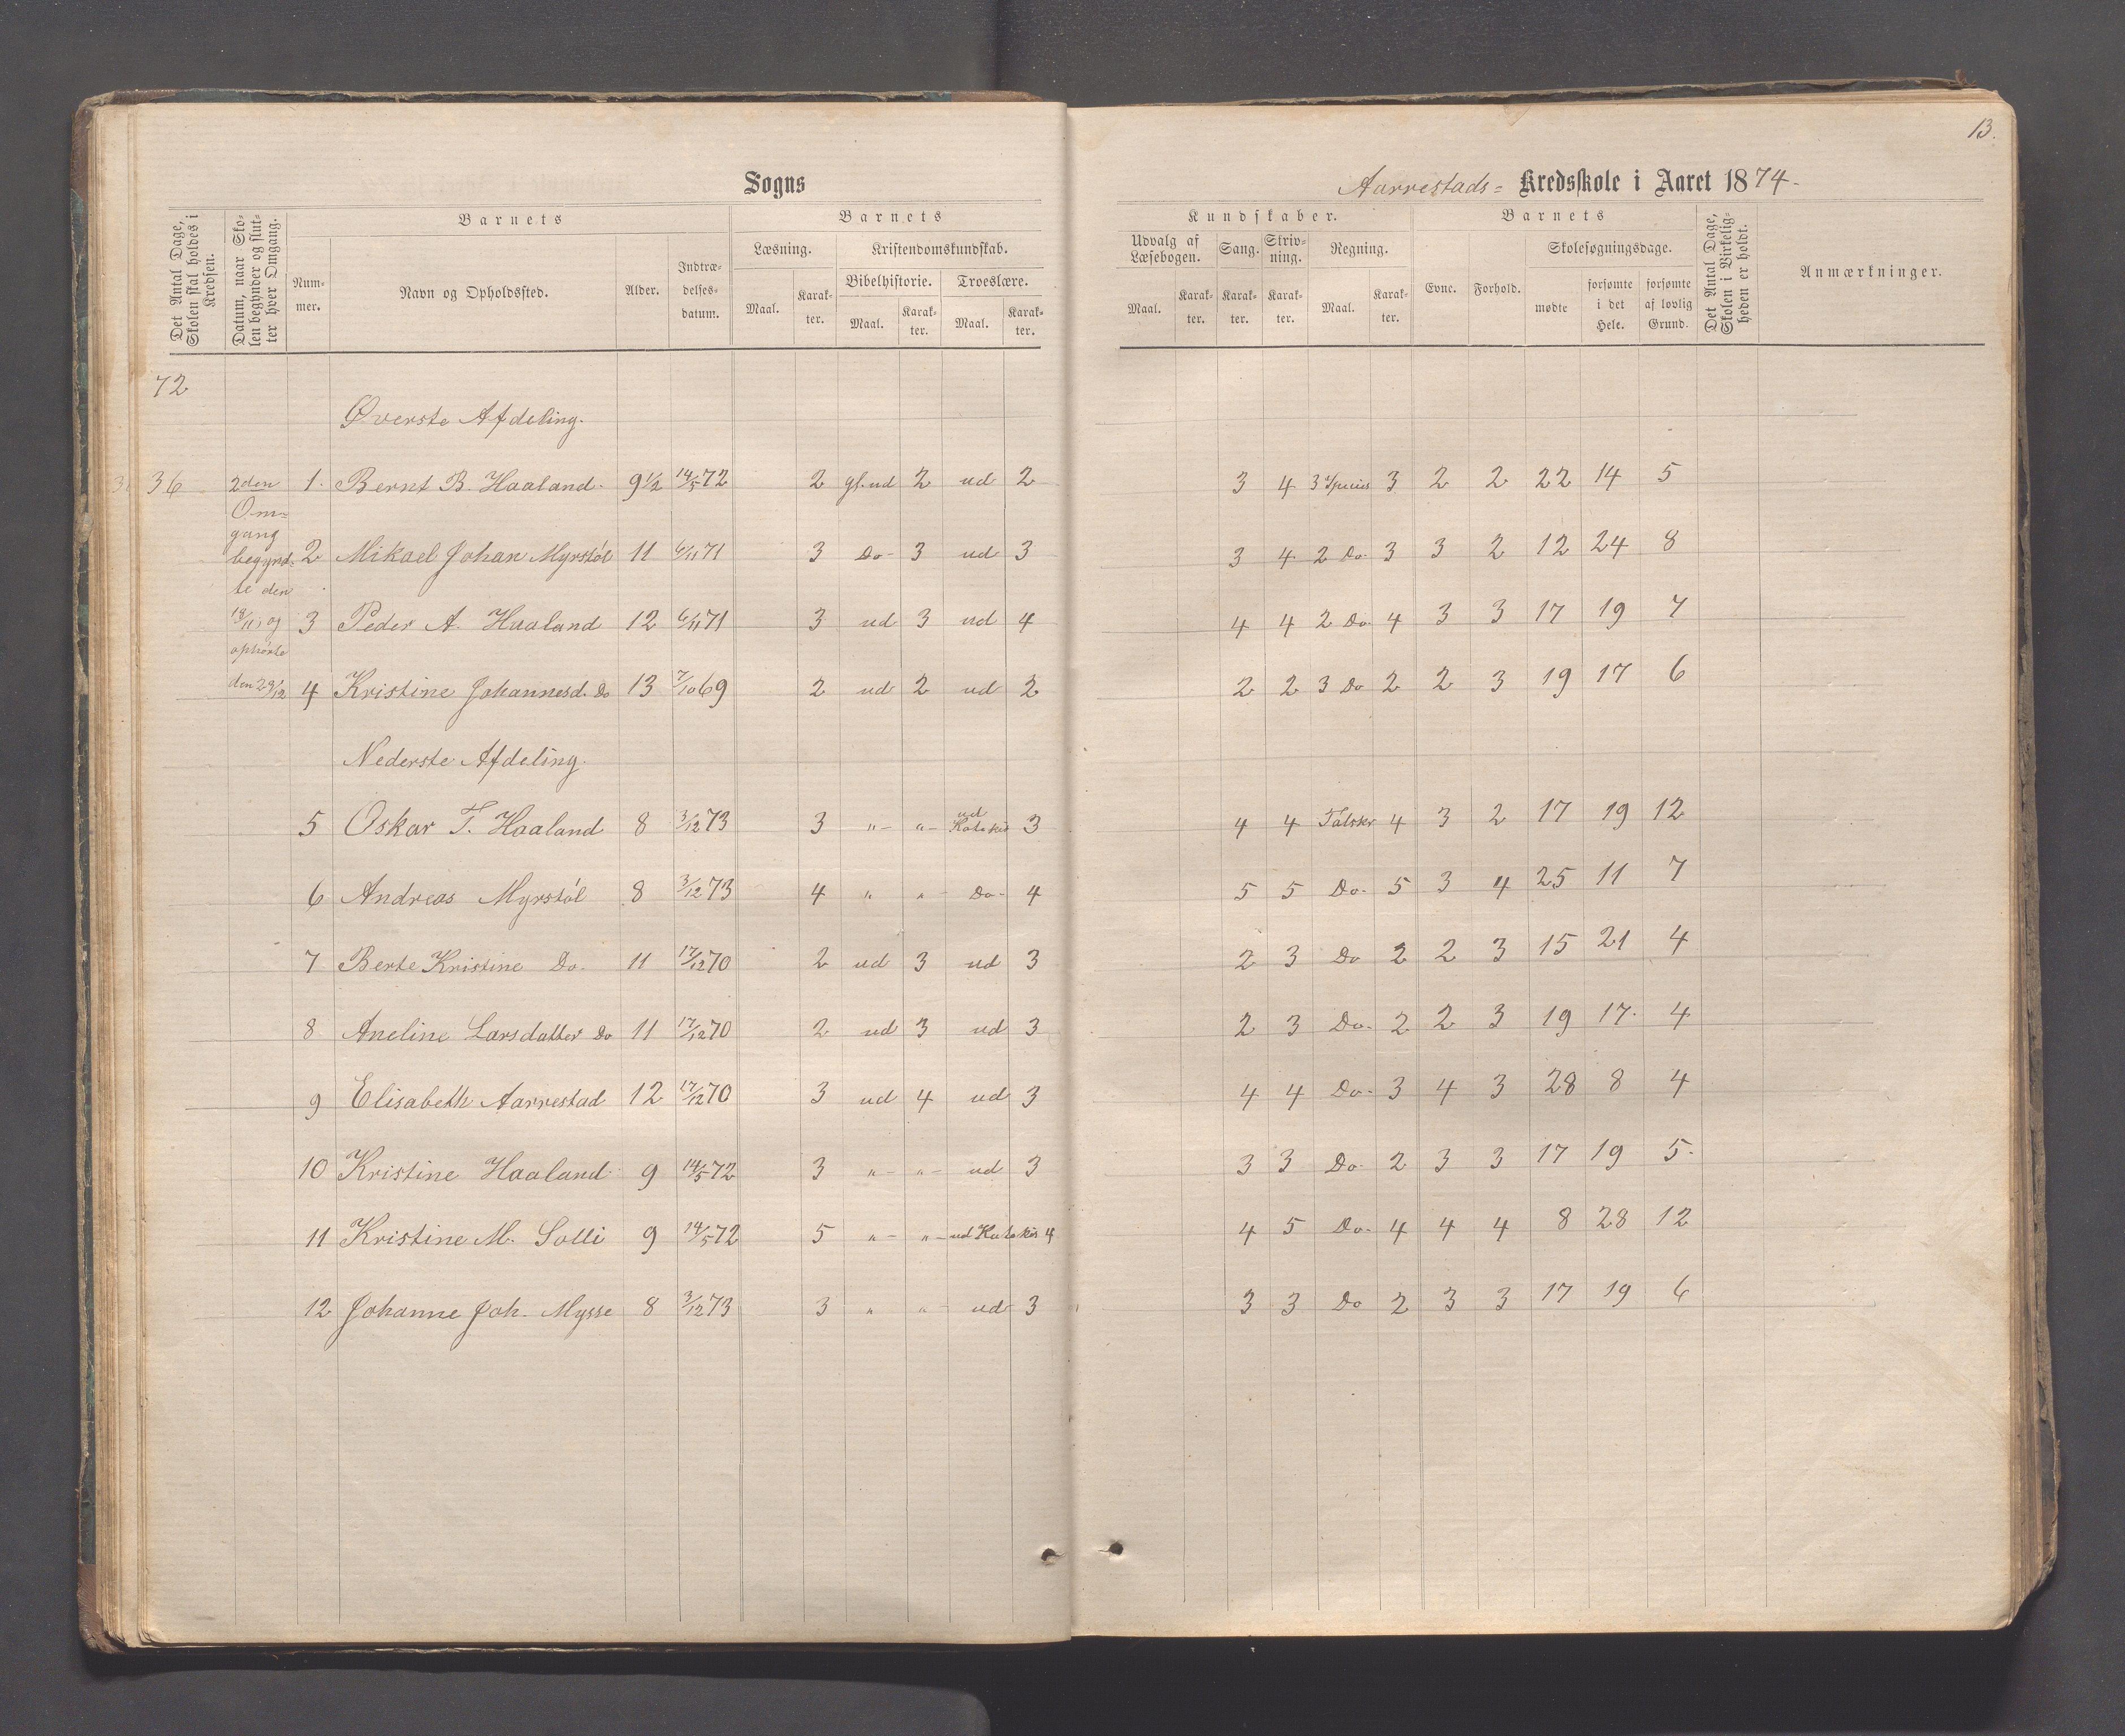 13.
Sogns
Aarrestads= Kredsskole i Aaret 1874-
Det Antal Dage, Skolen skal holdes i Kredsen.
Datum, naar Skolen begynder og slutter hver Omgang.
Barnets
Nummer.
Navn og Opholdssted.
Alder.
Indtrædelses-datum.
Barnets
Læsning.
Maal. Karakter.
Kristendomskundskab.
Bibelhistorie. Troeslære.
Maal. Karakter. Maal. Karakter.
Kundskaber.
Udvalg af Læsebogen. Sang. Skrivning. Regning.
Maal. Karakter. Karakter. Karakter. Maal. Karakter.
Barnets
Evne. Forhold.
Skolesøgningsdage.
mødte forsømte i det Hele. forsømte af lovlig Grund.
Det Antal Dage, Skolen i Virkeligheden er holdt.
Anmærkninger.
72
Øverste Afdeling.
36 2den Om=gang begynd-te den 18/11, og ophørte den 29/12
1. Bernt B. Haaland. 9½ 14/5 72 2 gl. ud 2 ud 2 3 4 3 Species 3 2 2 22 14 5
2 Mikael Johan Myrstøl 11 6/11 71 3 Do- 3 ud 3 3 4 2 Do 3 3 2 12 24 8
3 Peder A. Haaland 12 6/11 71 3 ud 3 ud 4 4 4 2 Do 4 3 3 17 19 7
4 Kristine Johannesd. Do 13 7/10 69 2 ud 2 ud 2 2 2 3 Do 2 2 3 19 17 6
Nederste Afdeling.
5 Oskar T. Haaland 8 3/12 73 3 "- "- ud Katekis 3 4 4 Talskr 4 3 2 17 19 12
6 Andreas Myrstøl 8 3/12 73 4 " " Do- 4 5 5 Do- 5 3 4 25 11 7
7 Berte Kristine Do. 11 17/12 70 2 ud 3 ud 3 2 3 Do 2 2 3 15 21 4
8 Aneline Larsdatter Do 11 17/12 70 2 ud 3 ud 3 2 3 Do- 2 2 3 19 17. 4
9 Elisabeth Aarrestad 12 17/12 70 3 ud 4 ud 3 4 4 Do- 3 4 3 28 8 4
10 Kristine Haaland 9 14/5 72 3 "- "- ud 3 3 3 Do- 2 3 3 17 19 5.
11 Kristine M. Solli 9 14/5 72 5 "- "- ud Katekis 4 4 5 Do- 4 4 4 8 28 12
12 Johanne Joh. Mysse 8 3/12 73 3 " " ud 3 3 3 Do 2 3 3 17 19 6